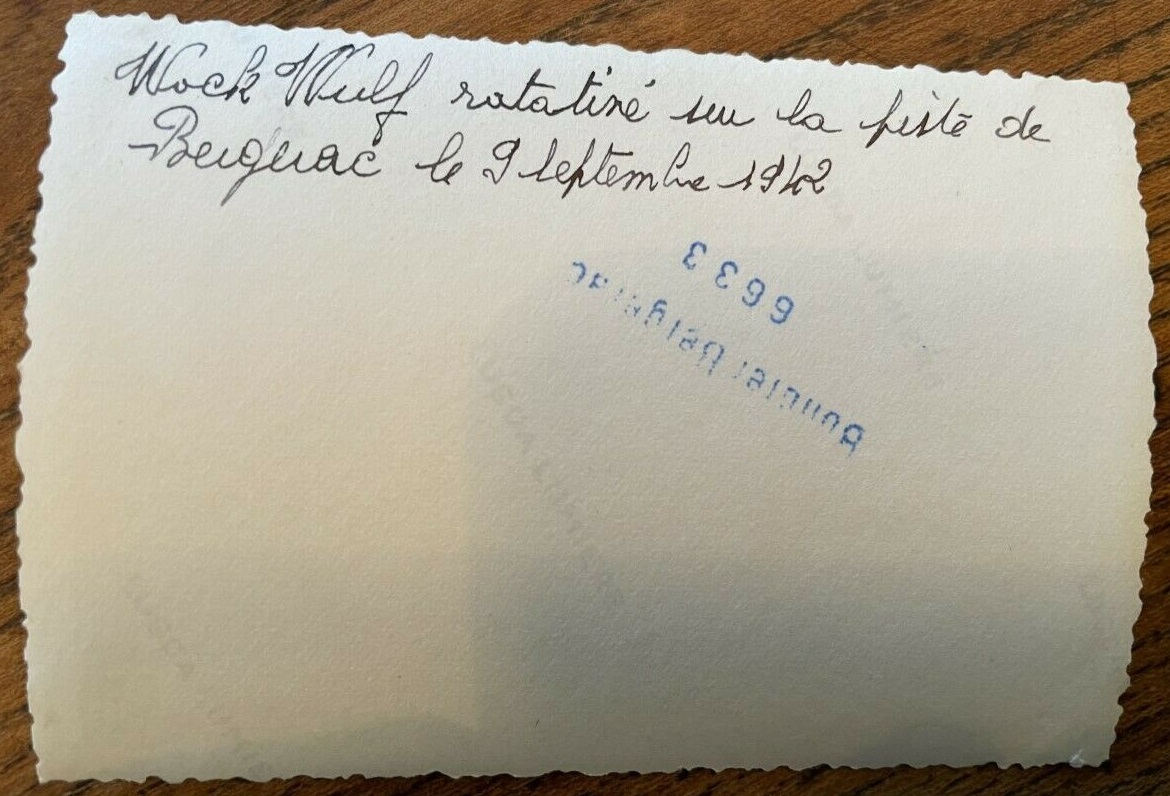 Wock Wulf ratatiné sur la piste de
Bergerac le 9 septembre 1942
Bergerac
6633